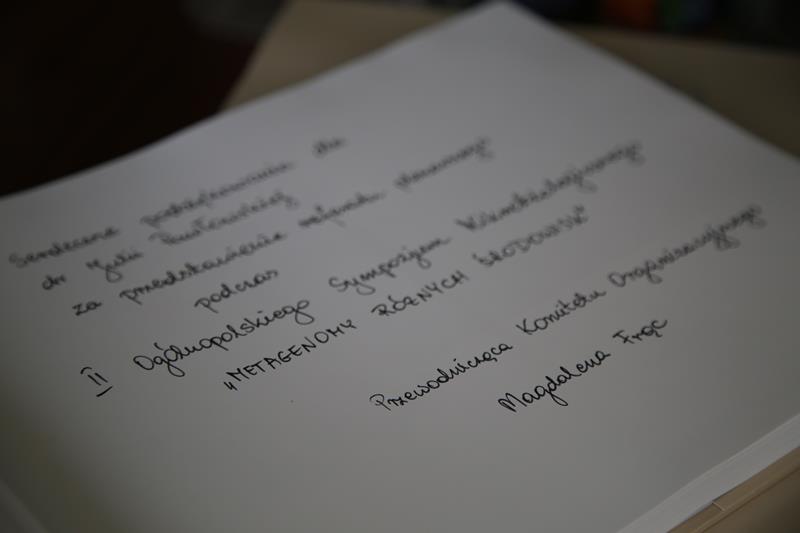 Serdeczne podziękowania dla
dr Julii Pawłowskiej
za przedstawienie referatu plenarnego
podczas
II Ogólnopolskiego Sympozjum Mikrobiologicznego
„METAGENOMY RÓŻNYCH ŚRODOWISK"
Przewodnicząca Komitetu Organizacyjnego
Magdalena Frąc